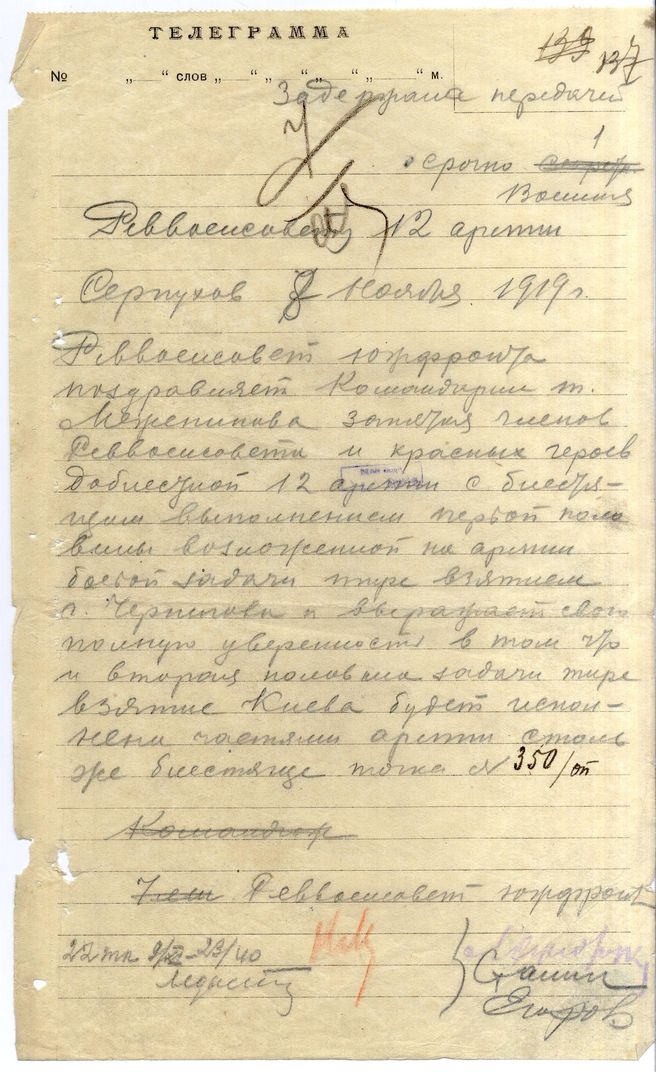 ТЕЛЕГРАММА
№ „ “ слов „ “ „ “ „ “ „ “ м.
139 137
Задержана передачей
1
срочно секретн.
Военная
Реввоенсовету 12 армии
Серпухов 8 ноября 1919 г.
Реввоенсовет южфронта
поздравляет Командарма т.
Меженинова запятая членов
Реввоенсовета и красных героев
доблестной 12 армии с блестя-
щим выполнением первой поло
вины возложенной на армии
боевой задачи тире взятием
г. Чернигова и выражает свою
полную уверенность в том что
и вторая половина задачи тире
взятие Киева будет испол-
нена частями армии столь
же блестяще точка № 350/оп
Командюж
Член Реввоенсовет южфронт
23/40
Сталин
Егоров